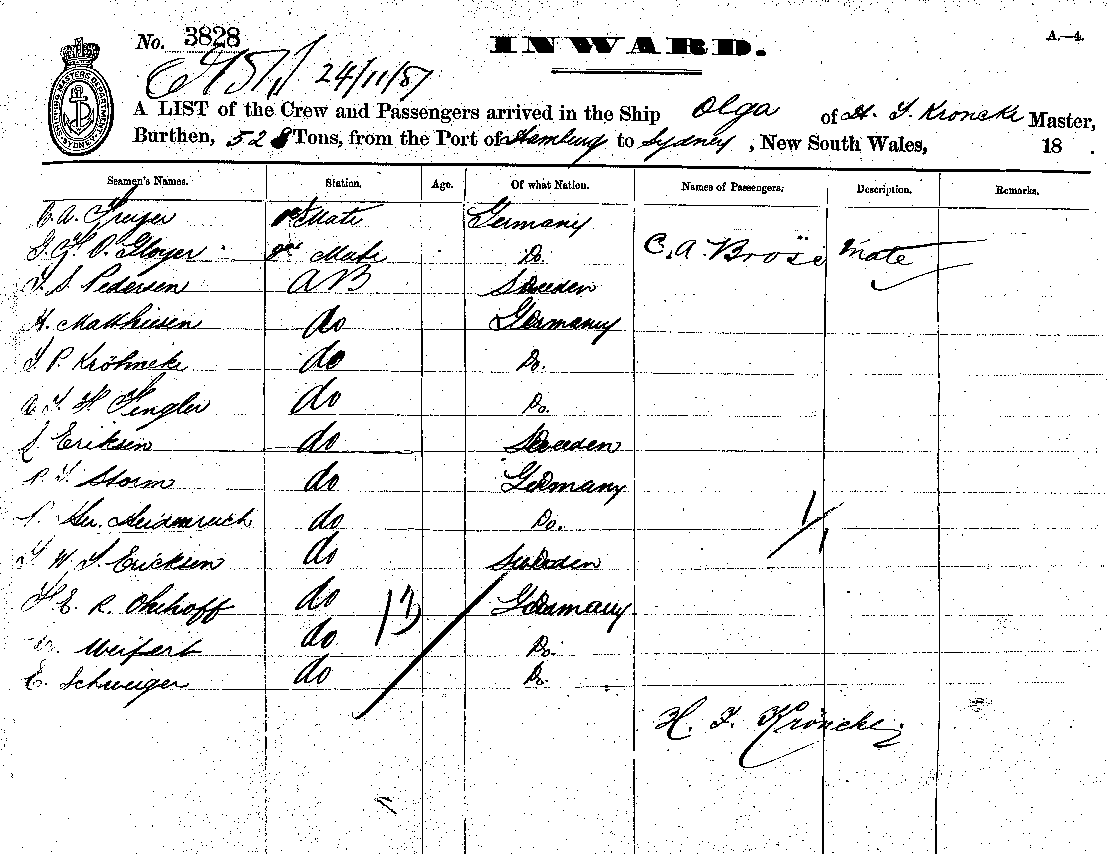 No. 3828
INWARD.
A.—4.
24/11/87
SHIPPING MASTERS DEPARTMENT SYDNEY
A LIST of the Crew and Passengers arrived in the Ship Olga of H. F. Kroncke Master,
Burthen, 528 Tons, from the Port of Hamburg to Sydney, New South Wales, 18 .
Seamen's Names. Station. Age. Of what Nation. Names of Passengers. Description. Remarks.
Mate Germany
2nd Mate Do. C. A. Bröse Mate
Pedersen AB Sweden
H. Matthiesen do Germany
P. Kröhncke do Do.
do Do.
Eriksen do Sweden
Storm do Germany
do Do.
W. Ericksen do Sweden
E. R. do Germany
13
1/1
do Do.
E. Schweiger do Do.
H. F. Kröncke